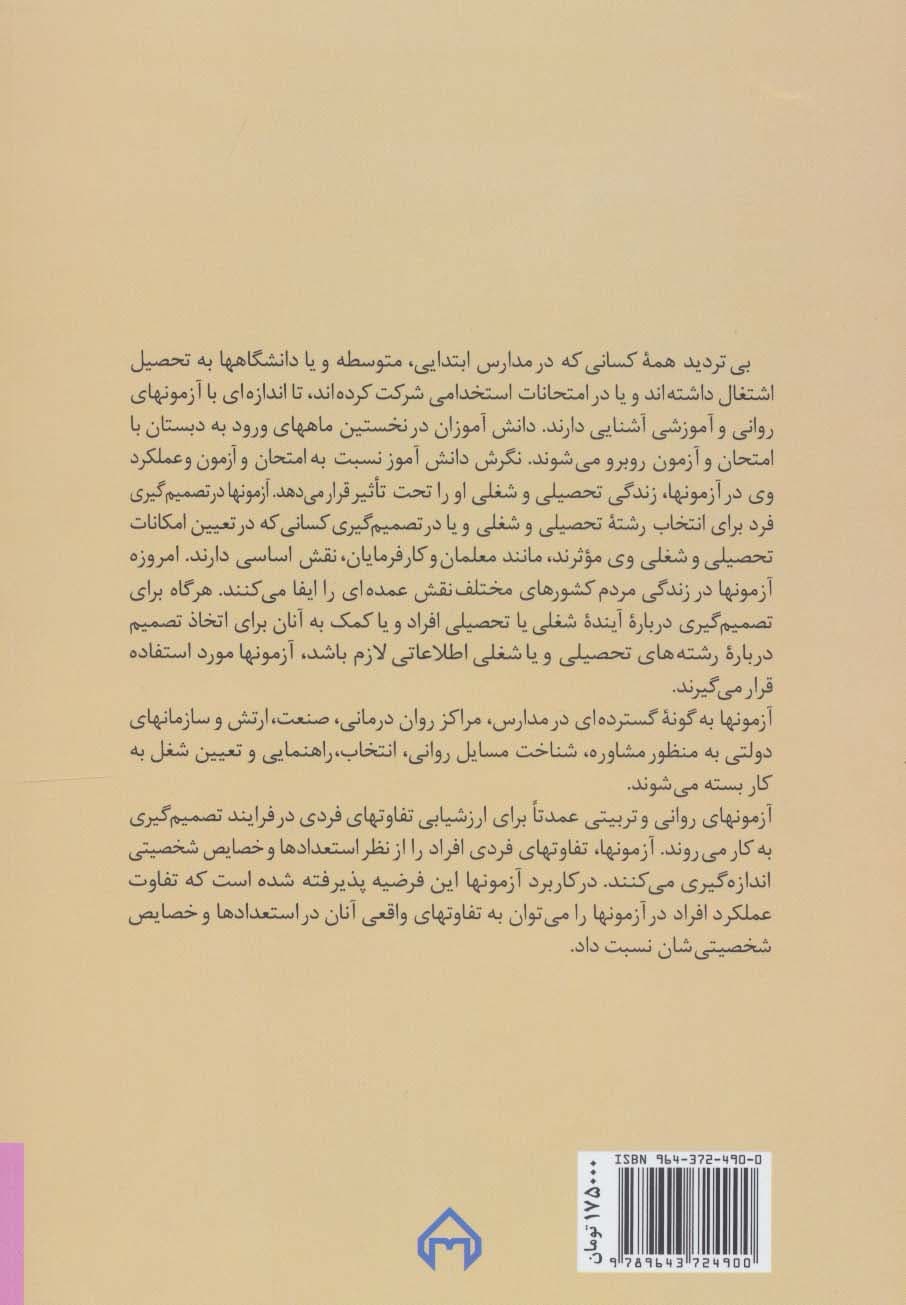 بی تردید همهٔ کسانی که در مدارس ابتدایی، متوسطه و یا دانشگاهها به تحصیل
اشتغال داشته‌اند و یا در امتحانات استخدامی شرکت کرده‌اند، تا اندازه‌ای با آزمونهای
روانی و آموزشی آشنایی دارند. دانش آموزان در نخستین ماههای ورود به دبستان با
امتحان و آزمون روبرو می‌شوند. نگرش دانش آموز نسبت به امتحان و آزمون و عملکرد
وی در آزمونها، زندگی تحصیلی و شغلی او را تحت تأثیر قرار می‌دهد. آزمونها در تصمیم‌گیری
فرد برای انتخاب رشتهٔ تحصیلی و شغلی و یا در تصمیم‌گیری کسانی که در تعیین امکانات
تحصیلی و شغلی وی مؤثرند، مانند معلمان و کارفرمایان، نقش اساسی دارند. امروزه
آزمونها در زندگی مردم کشورهای مختلف نقش عمده‌ای را ایفا می‌کنند. هرگاه برای
تصمیم‌گیری دربارهٔ آیندهٔ شغلی یا تحصیلی افراد و یا کمک به آنان برای اتخاذ تصمیم
دربارهٔ رشته‌های تحصیلی و یا شغلی اطلاعاتی لازم باشد، آزمونها مورد استفاده
قرار می‌گیرند.
آزمونها به گونهٔ گسترده‌ای در مدارس، مراکز روان درمانی، صنعت، ارتش و سازمانهای
دولتی به منظور مشاوره، شناخت مسایل روانی، انتخاب، راهنمایی و تعیین شغل به
کار بسته می‌شوند.
آزمونهای روانی و تربیتی عمدتاً برای ارزشیابی تفاوتهای فردی در فرایند تصمیم‌گیری
به کار می‌روند. آزمونها، تفاوتهای فردی افراد را از نظر استعدادها و خصایص شخصیتی
اندازه‌گیری می‌کنند. در کاربرد آزمونها این فرضیه پذیرفته شده است که تفاوت
عملکرد افراد در آزمونها را می‌توان به تفاوتهای واقعی آنان در استعدادها و خصایص
شخصیتی‌شان نسبت داد.
ISBN 964-372-490-0
۱۷۵۰۰۰ تومان
9 789643 724900